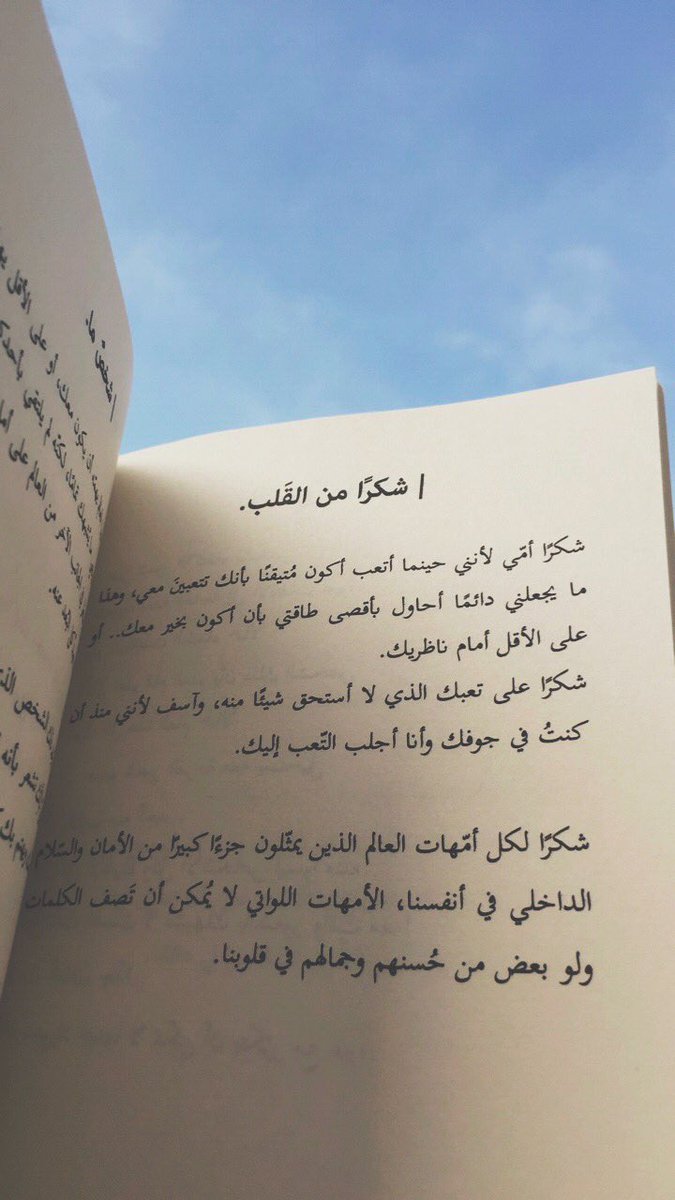 | شكرًا من القَلب.
شكرًا أمّي لأنني حينما أتعب أكون مُتيقنًا بأنك تتعبينَ معي، وهذا
ما يجعلني دائمًا أحاول بأقصى طاقتي بأن أكون بخير معك.. أو
على الأقل أمام ناظريك.
شكرًا على تعبك الذي لا أستحق شيئًا منه، وآسف لأنني منذ أن
كنتُ في جوفك وأنا أجلب التّعب إليك.
شكرًا لكل أمّهات العالم الذين يمثّلون جزءًا كبيرًا من الأمان والسّلام
الداخلي في أنفسنا، الأمهات اللواتي لا يُمكن أن تَصف الكلمات
ولو بعض من حُسنهم وجمالهم في قلوبنا.